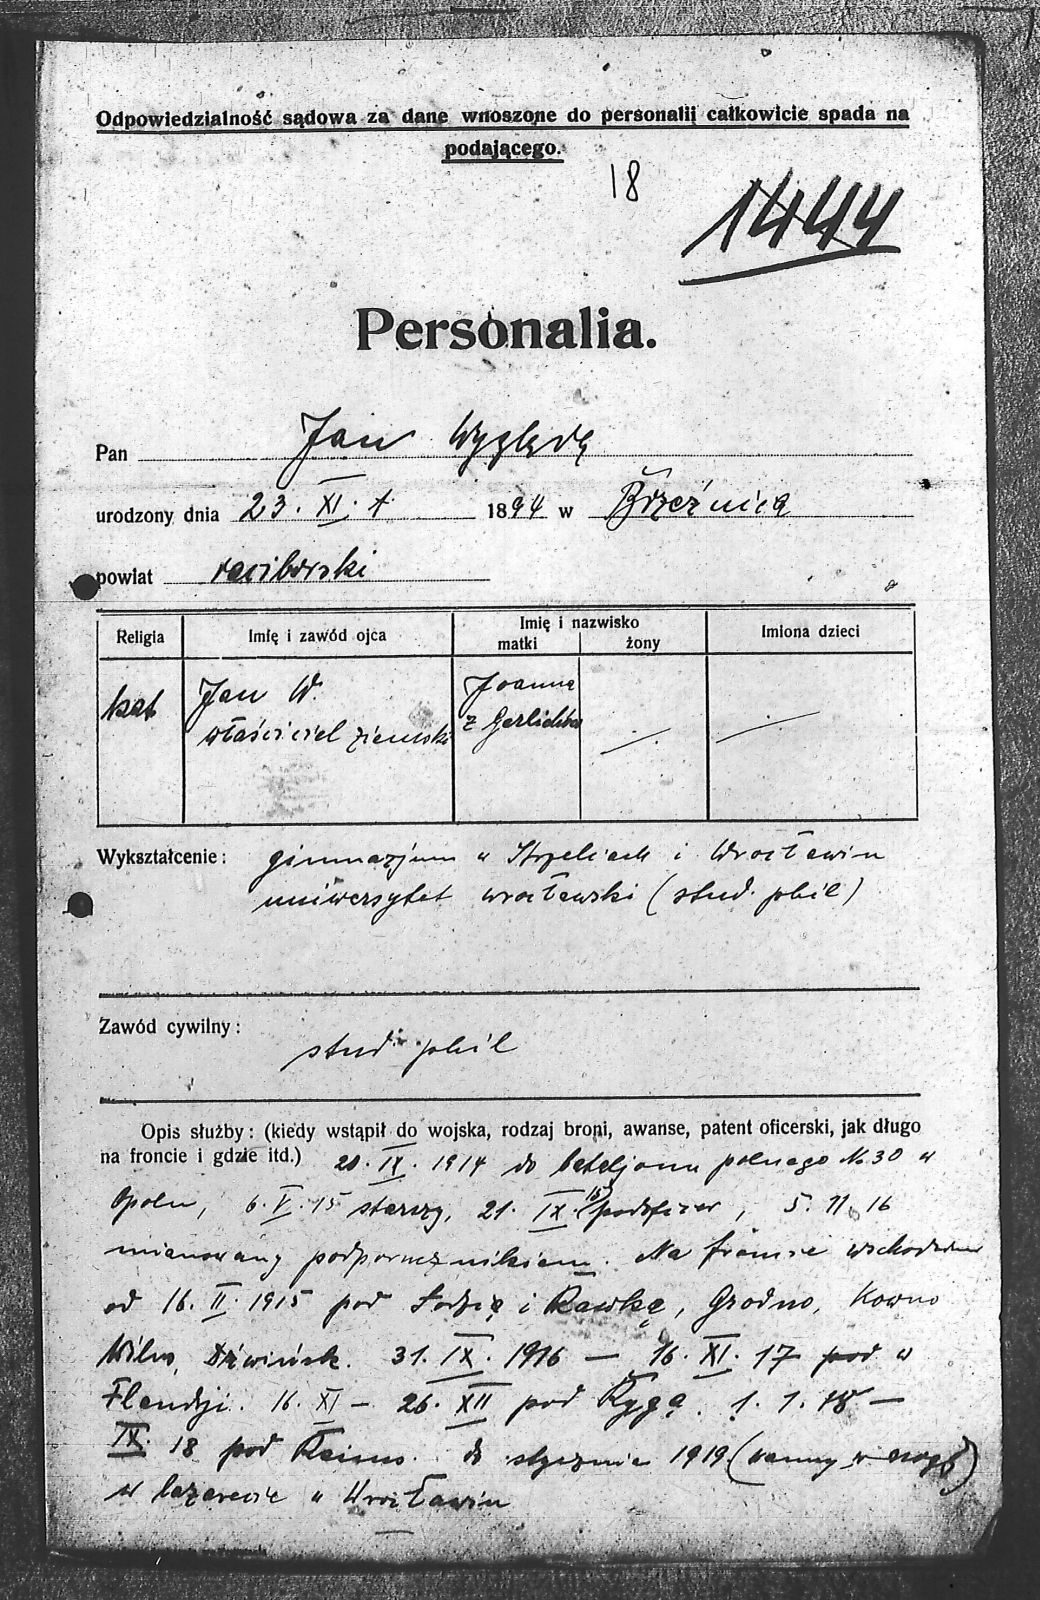 Odpowiedzialność sądowa za dane wnoszone do personalii całkowicie spada na
podającego.
18
1444
Personalia.
Pan Jan Wyglądę
urodzony dnia 23. XI. 1894 w Brzeźnicą
powiat raciborski
Religia Imię i zawód ojca Imię i nazwisko Imiona dzieci
matki żony
kat Jan W. Joanna
właściciel ziemski z Gerlichów
Wykształcenie: gimnazjum w Strzelcach i Wrocławiu
uniwersytet wrocławski (stud. phil)
Zawód cywilny:
stud. phil
Opis służby: (kiedy wstąpił do wojska, rodzaj broni, awanse, patent oficerski, jak długo
na froncie i gdzie itd.) 20. IX. 1914 do bataljonu polnego No 30 w
Opolu, 6. V. 15 starszy, 21. IX. 15 podoficer, 5. 11. 16
mianowany podporucznikiem. Na froncie wschodnim
od 16. II. 1915 pod Łodzią i Rawką, Grodno, Kowno
Wilno, Dźwińsk. 31. IX. 1916 — 16. XI. 17 pod w
Flandji. 16. XI — 26. XII pod Rygą. 1. 1. 18 —
IX. 18 pod Reims. do stycznia 1919 (ranny w nogę)
w lazarecie w Wrocławiu